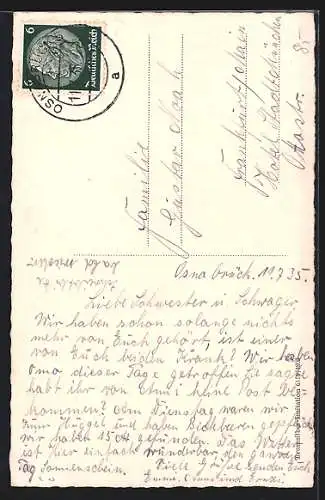 6 6
Deutsches Reich
OSNA
11
a
8.-
Familie
Gustav
Frankfurt/Main
Hotel
Ottostr.
Schreibt
bald wieder
Osnabrück. 11.7.35.
Liebe Schwester u. Schwager
Wir haben schon solange nichts
mehr von Euch gehört, ist einer
von Euch beiden Krank? Wir haben
Oma dieser Tage getroffen Sie sagte
habt ihr von keine Post be
kommen? Am Dienstag waren wir
zum Hüggel und haben Bickbeeren gepflückt
wir haben 15 gefunden. Das Wetter
ist hier einfach wunderbar, den ganzen
Tag Sonnenschein. Viele Grüße senden Euch
Emma, und